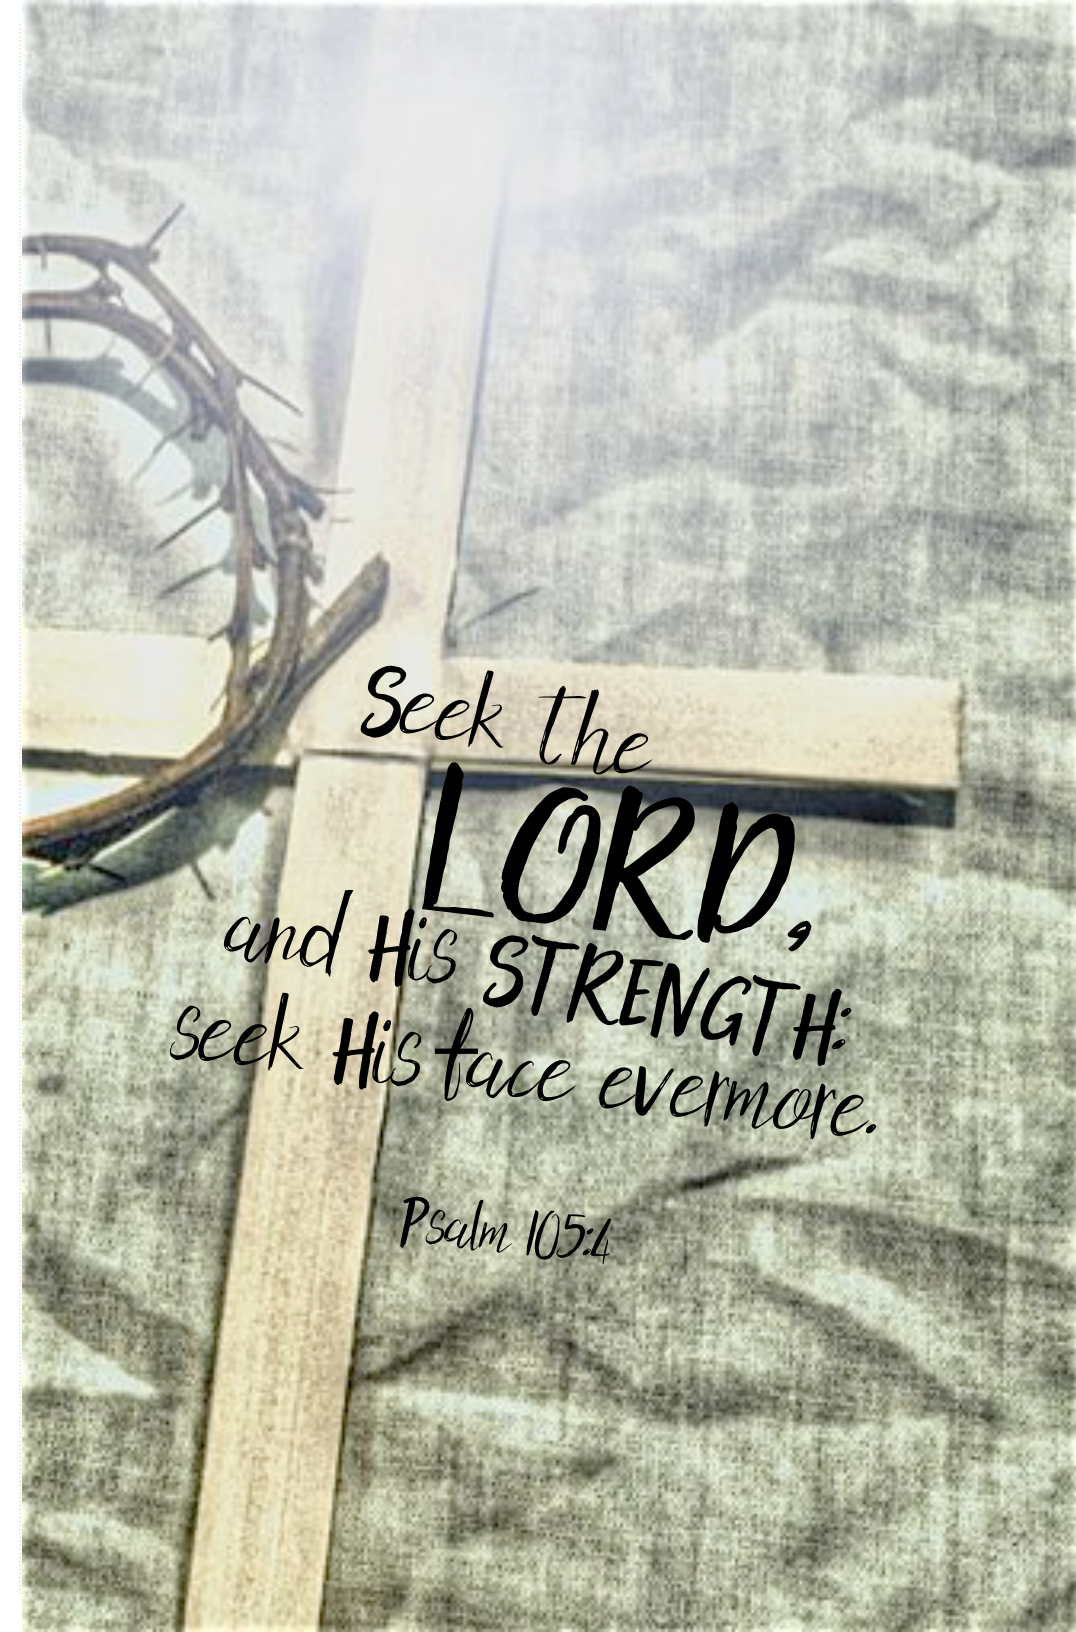 Seek the
LORD,
and His STRENGTH:
seek His face evermore.
Psalm 105:4